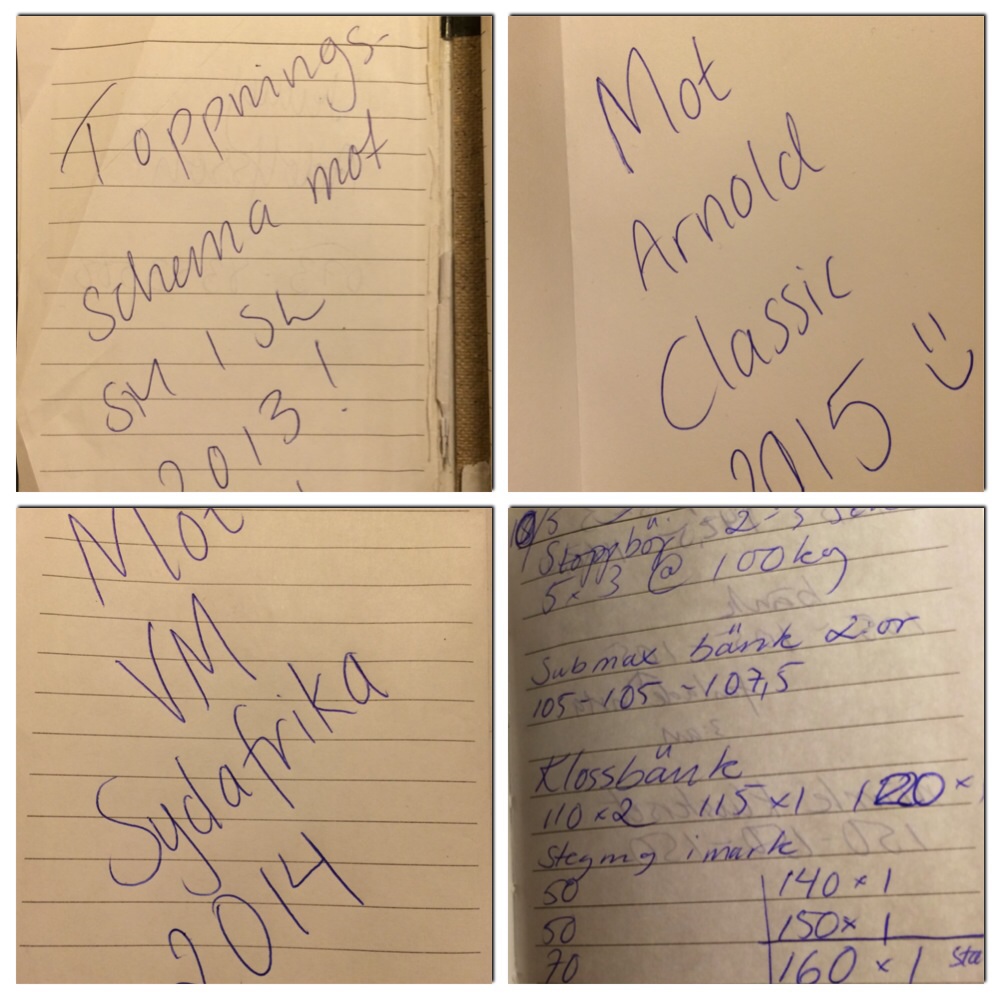 Toppnings-
schema mot
SM i SL
2013!
Mot
Arnold
Classic
2015 :)
Mot
VM
Sydafrika
2014
Stoppbän 2-3
5x3 @ 100kg
Submax bänk 2:or
105-105-107,5
Klossbänk
110x2 115x1 120x
Stegring i mark
50 140x1
50 150x1
70 160x1